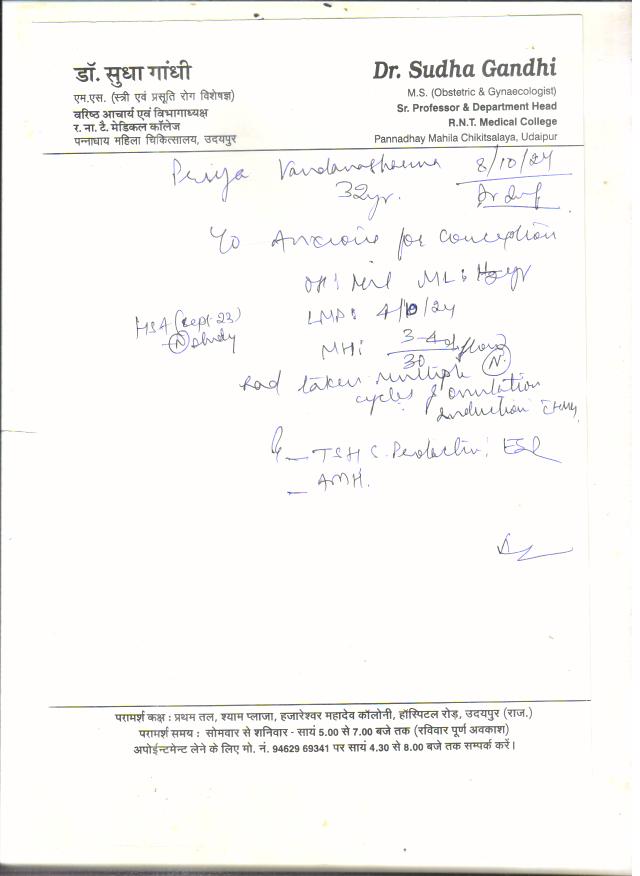 डॉ. सुधा गांधी
एम.एस. (स्त्री एवं प्रसूति रोग विशेषज्ञ)
वरिष्ठ आचार्य एवं विभागाध्यक्ष
र. ना. टै. मेडिकल कॉलेज
पन्नाधाय महिला चिकित्सालय, उदयपुर
Dr. Sudha Gandhi
M.S. (Obstetric & Gynaecologist)
Sr. Professor & Department Head
R.N.T. Medical College
Pannadhay Mahila Chikitsalaya, Udaipur
Priya 8/10/24
32yr.
Anxious for conception
OH: Nil ML:
LMP: 4/10/24
HSG (Sept-23)
(N) study
MH: 3-4d flow
30 (N)
had taken multiple
cycles of ovulation
induction
TSH S. Prolactin, ESR
AMH.
परामर्श कक्ष : प्रथम तल, श्याम प्लाजा, हजारेश्वर महादेव कॉलोनी, हॉस्पिटल रोड़, उदयपुर (राज.)
परामर्श समय : सोमवार से शनिवार - सायं 5.00 से 7.00 बजे तक (रविवार पूर्ण अवकाश)
अपोईन्टमेन्ट लेने के लिए मो. नं. 94629 69341 पर सायं 4.30 से 8.00 बजे तक सम्पर्क करें।